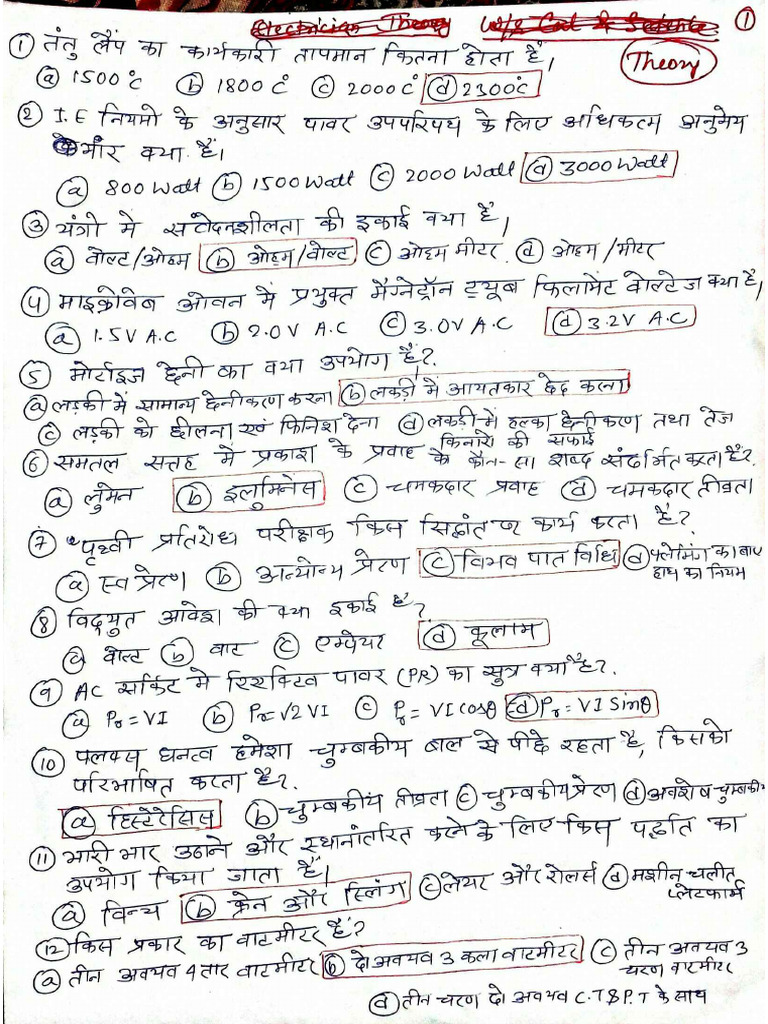 Electrician Theory W/S Cal & Science ①
① तंतु लैंप का कार्यकारी तापमान कितना होता है।
Theory
ⓐ 1500°c ⓑ 1800 c° ⓒ 2000 c° ⓓ 2300°c
② I.E नियमो के अनुसार पावर उपपरिपथ के लिए अधिकतम अनुमेय
भार क्या है।
ⓐ 800 watt ⓑ 1500 watt ⓒ 2000 watt ⓓ 3000 watt
③ यंत्रो मे संवेदनशीलता की इकाई क्या है।
ⓐ वोल्ट/ओहम ⓑ ओहम/वोल्ट ⓒ ओहम मीटर ⓓ ओहम/मीटर
④ माइक्रोवेब ओवन में प्रयुक्त मैग्नेट्रॉन ट्यूब फिलामेंट वोल्टेज क्या है।
ⓐ 1.5V A.C ⓑ 2.0V A.C ⓒ 3.0V A.C ⓓ 3.2V A.C
⑤ मोर्टाइज छेनी का क्या उपयोग है?
ⓐ लड़की में सामान्य छेनीकरण करना ⓑ लकड़ी में आयतकार छेद करना
ⓒ लड़की को छीलना एवं फिनिश देना ⓓ लकडी में हल्का छेनीकरण तथा तेज
किनारो की सफाई
⑥ समतल सत्तह में प्रकाश के प्रवाह के कौन-सा शब्द संदर्भित करता है?
ⓐ लुमेन ⓑ इलुमिनेस ⓒ चमकदार प्रवाह ⓓ चमकदार तीव्रता
⑦ पृथ्वी प्रतिरोध परीक्षक किस सिद्धांत पर कार्य करता है?
ⓐ स्व प्रेरण ⓑ अन्योन्य प्रेरण ⓒ विभव पात विधि ⓓ फ्लेमिंग का बाए
हाथ का नियम
⑧ विद्युत आवेश की क्या इकाई है?
ⓐ वोल्ट ⓑ वाट ⓒ एम्पेयर ⓓ कूलाम
⑨ AC सर्किट मे रिएक्टिव पावर (PR) का सुत्र क्या है?
ⓐ Pr = VI ⓑ Pr = √2 VI ⓒ Pr = VI cosθ ⓓ Pr = VI Sinθ
⑩ फ्लक्स घनत्व हमेशा चुम्बकीय बाल से पीछे रहता है, किसको
परिभाषित करता है?
ⓐ हिस्टेरेसिस ⓑ चुम्बकीय तीव्रता ⓒ चुम्बकीय प्रेरण ⓓ अवशेष चुम्बकीय
⑪ भारी भार उठाने और स्थानांतरित करने के लिए किस पद्धति का
उपयोग किया जाता है।
ⓐ विन्च ⓑ क्रेन और स्लिंग ⓒ लेयर और रोलर्स ⓓ मशीन चलीत
प्लेटफार्म
⑫ किस प्रकार का वाटमीटर है?
ⓐ तीन अवयव 4 तार वाटमीटर ⓑ दो अवयव 3 कला वाटमीटर ⓒ तीन अवयव 3
चरण वाटमीटर
ⓓ तीन चरण दो अवयव C.T & P.T के साथ